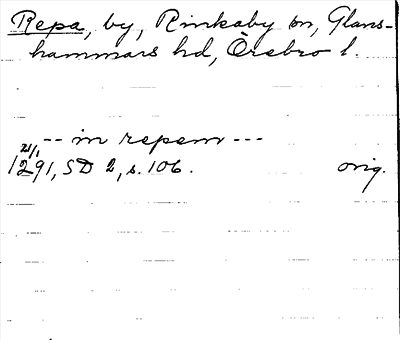 Repa, by, Rinkaby sn, Glans-
hammars hd, Örebro l.
-- in repem ---
21/1
1291, SD 2, s. 106. orig.